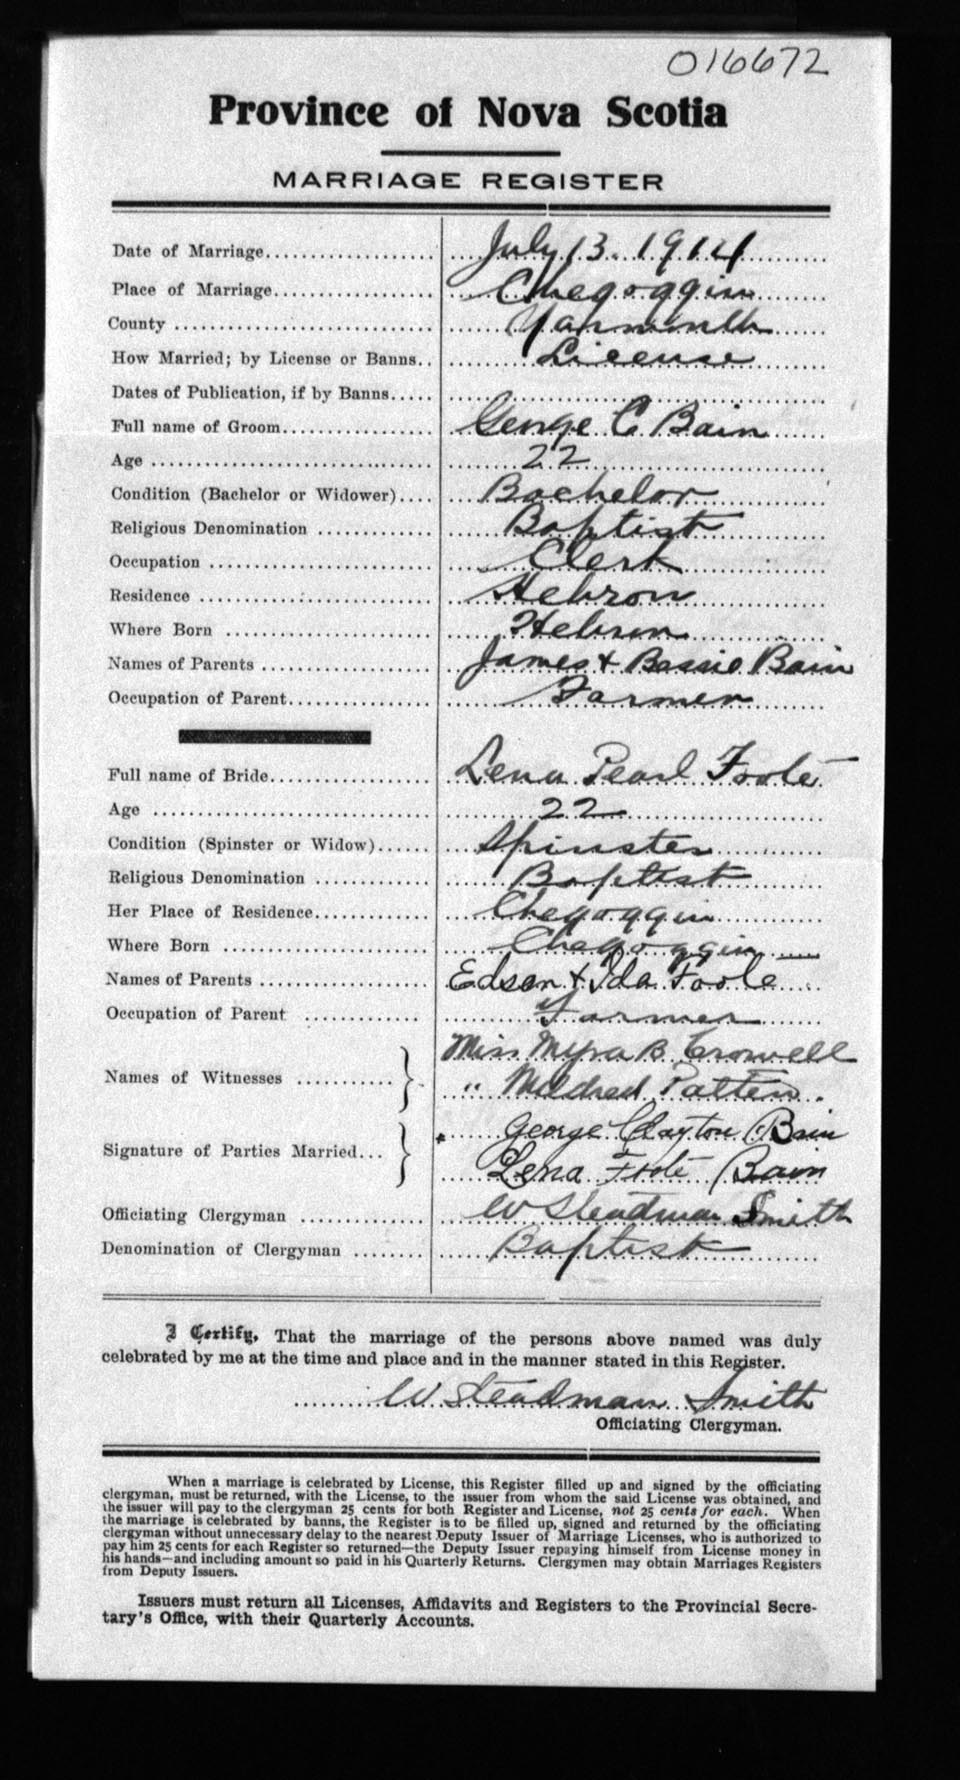 016672
Province of Nova Scotia
MARRIAGE REGISTER
Date of Marriage................... July 13. 1914
Place of Marriage.................. Chegoggin
County ............................ Yarmouth
How Married; by License or Banns.. License
Dates of Publication, if by Banns.....
Full name of Groom................. George C Bain
Age ............................... 22
Condition (Bachelor or Widower).... Bachelor
Religious Denomination ............. Baptist
Occupation ........................ Clerk
Residence .......................... Hebron
Where Born ........................ Hebron
Names of Parents ................... James & Bessie Bain
Occupation of Parent................ Farmer
Full name of Bride.................. Lena Pearl Foote
Age ............................... 22
Condition (Spinster or Widow)...... Spinster
Religious Denomination ............. Baptist
Her Place of Residence............. Chegoggin
Where Born ........................ Chegoggin
Names of Parents ................... Edson & Ida Foote
Occupation of Parent ............. Farmer
Miss Myra B. Crowell
Names of Witnesses ...........
" Mildred Patten.
George Clayton Bain
Signature of Parties Married...
Lena Foote Bain
Officiating Clergyman ............. W Steadman Smith
Denomination of Clergyman ........ Baptist
I Certify, That the marriage of the persons above named was duly
celebrated by me at the time and place and in the manner stated in this Register.
W. Steadman Smith
Officiating Clergyman.
When a marriage is celebrated by License, this Register filled up and signed by the officiating
clergyman, must be returned, with the License, to the issuer from whom the said License was obtained, and
the issuer will pay to the clergyman 25 cents for both Register and License, not 25 cents for each. When
the marriage is celebrated by banns, the Register is to be filled up, signed and returned by the officiating
clergyman without unnecessary delay to the nearest Deputy Issuer of Marriage Licenses, who is authorized to
pay him 25 cents for each Register so returned—the Deputy Issuer repaying himself from License money in
his hands—and including amount so paid in his Quarterly Returns. Clergymen may obtain Marriages Registers
from Deputy Issuers.
Issuers must return all Licenses, Affidavits and Registers to the Provincial Secre-
tary's Office, with their Quarterly Accounts.